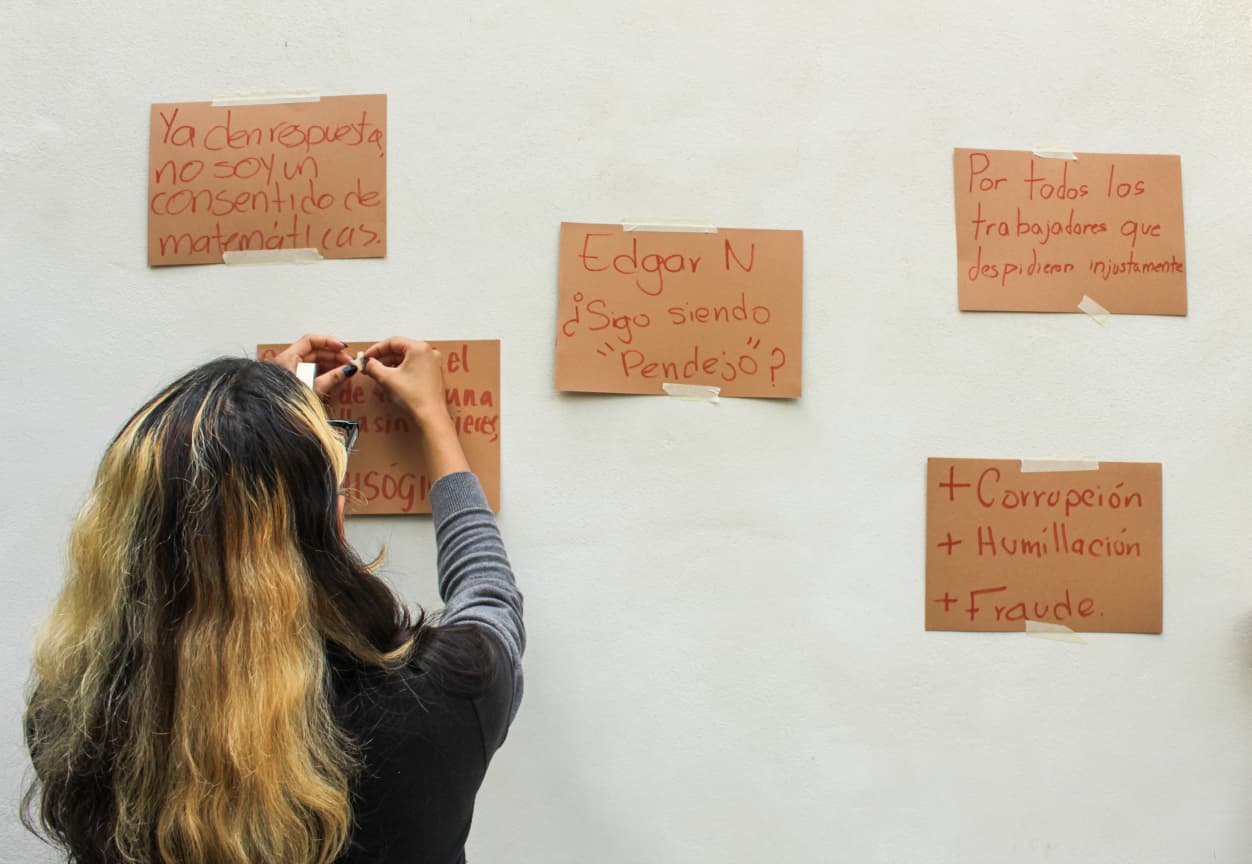 Ya den respuesta,
no soy un
consentido de
matemáticas.
el
de una
sin
Edgar N
¿Sigo siendo
"Pendejo"?
Por todos los
trabajadores que
despidieron injustamente
+ Corrupción
+ Humillación
+ Fraude.